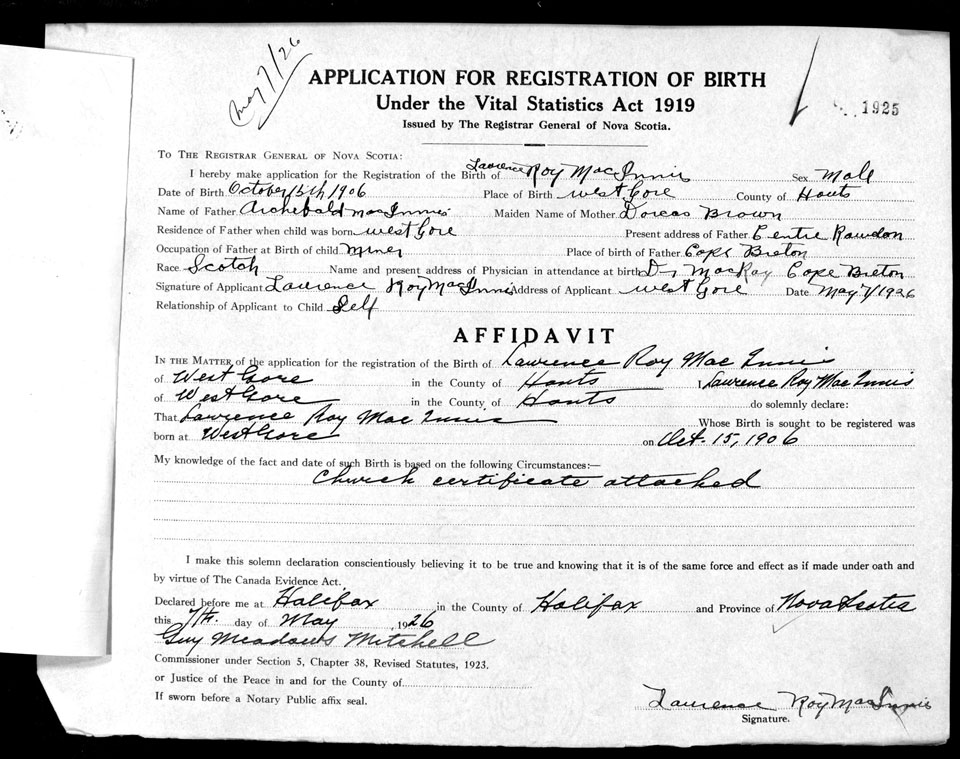 May 7/26
APPLICATION FOR REGISTRATION OF BIRTH
Under the Vital Statistics Act 1919
1925
Issued by The Registrar General of Nova Scotia.
TO THE REGISTRAR GENERAL OF NOVA SCOTIA:
I hereby make application for the Registration of the Birth of Lawrence Roy MacInnis Sex Male
Date of Birth October 15th 1906 Place of Birth West Gore County of Hants
Name of Father Archebald MacInnis Maiden Name of Mother Dorcas Brown
Residence of Father when child was born West Gore Present address of Father Centre Rawdon
Occupation of Father at Birth of child Miner Place of birth of Father Cape Breton
Race Scotch Name and present address of Physician in attendance at birth Dr MacKay Cape Breton
Signature of Applicant Laurence Roy MacInnis Address of Applicant West Gore Date May 7/1926
Relationship of Applicant to Child Self
AFFIDAVIT
IN THE MATTER of the application for the registration of the Birth of Lawrence Roy Mac Innis
of West Gore in the County of Hants I Lawrence Roy Mac Innis
of West Gore in the County of Hants do solemnly declare:
That Lawrence Roy Mac Innis Whose Birth is sought to be registered was
born at West Gore on Oct. 15, 1906
My knowledge of the fact and date of such Birth is based on the following Circumstances:—
Church certificate attached
I make this solemn declaration conscientiously believing it to be true and knowing that it is of the same force and effect as if made under oath and
by virtue of The Canada Evidence Act.
Declared before me at Halifax in the County of Halifax and Province of Nova Scotia
this 7th. day of May, 1926
Guy Meadows Mitchell
Commissioner under Section 5, Chapter 38, Revised Statutes, 1923,
or Justice of the Peace in and for the County of
If sworn before a Notary Public affix seal.
Laurence Roy MacInnis
Signature.